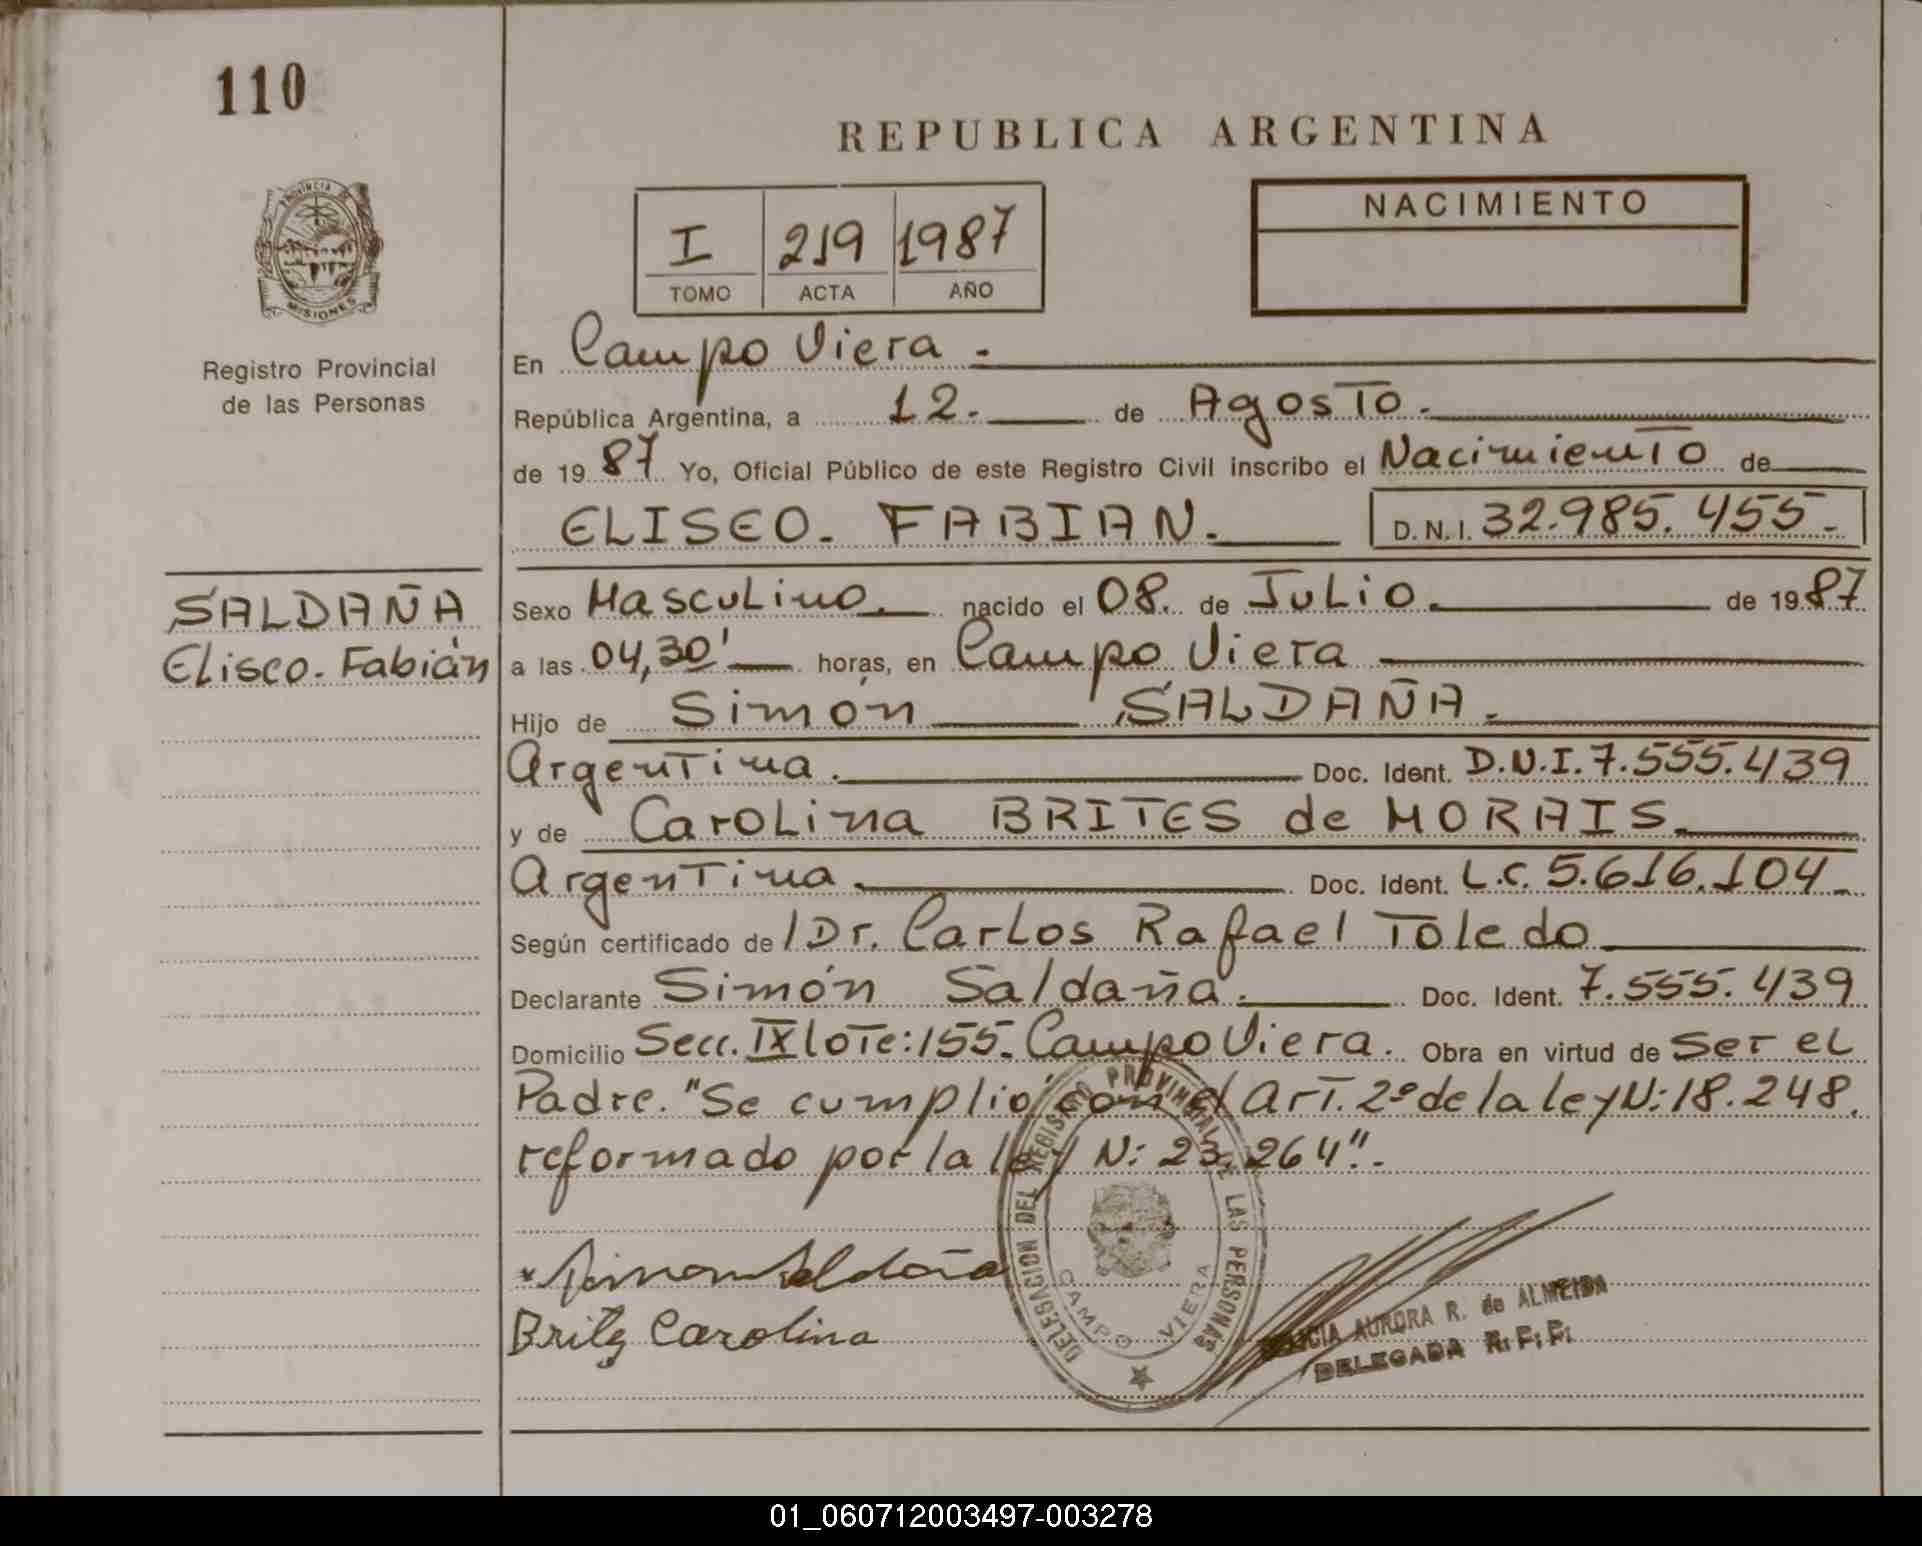 110
PROVINCIA DE
MISIONES
Registro Provincial
de las Personas
SALDAÑA
Eliseo. Fabián
REPUBLICA ARGENTINA
I 219 1987
TOMO ACTA AÑO
NACIMIENTO
En Campo Viera.-
República Argentina, a 12. de Agosto.
de 1987 Yo, Oficial Público de este Registro Civil inscribo el Nacimiento de
ELISEO. FABIAN. D.N.I. 32.985.455.-
Sexo Masculino. nacido el 08. de Julio. de 1987
a las 04,30' horas, en Campo Viera
Hijo de Simón SALDAÑA.
Argentina. Doc. Ident. D.N.I. 7.555.439
y de Carolina BRITES de MORAIS.
Argentina. Doc. Ident. L.C. 5.616.104
Según certificado de /Dr. Carlos Rafael Toledo
Declarante Simón Saldaña. Doc. Ident. 7.555.439
Domicilio Secc. IX lote: 155. Campo Viera. Obra en virtud de Ser el
Padre. "Se cumplió con el Art. 2º de la ley N: 18.248.
reformado por la ley N: 23.264".-
Simon Saldaña
Brites Carolina
DELEGACION DEL REGISTRO PROVINCIAL DE LAS PERSONAS
CAMPO VIERA
AURORA R. de ALMEIDA
DELEGADA R. P. P.
01_060712003497-003278